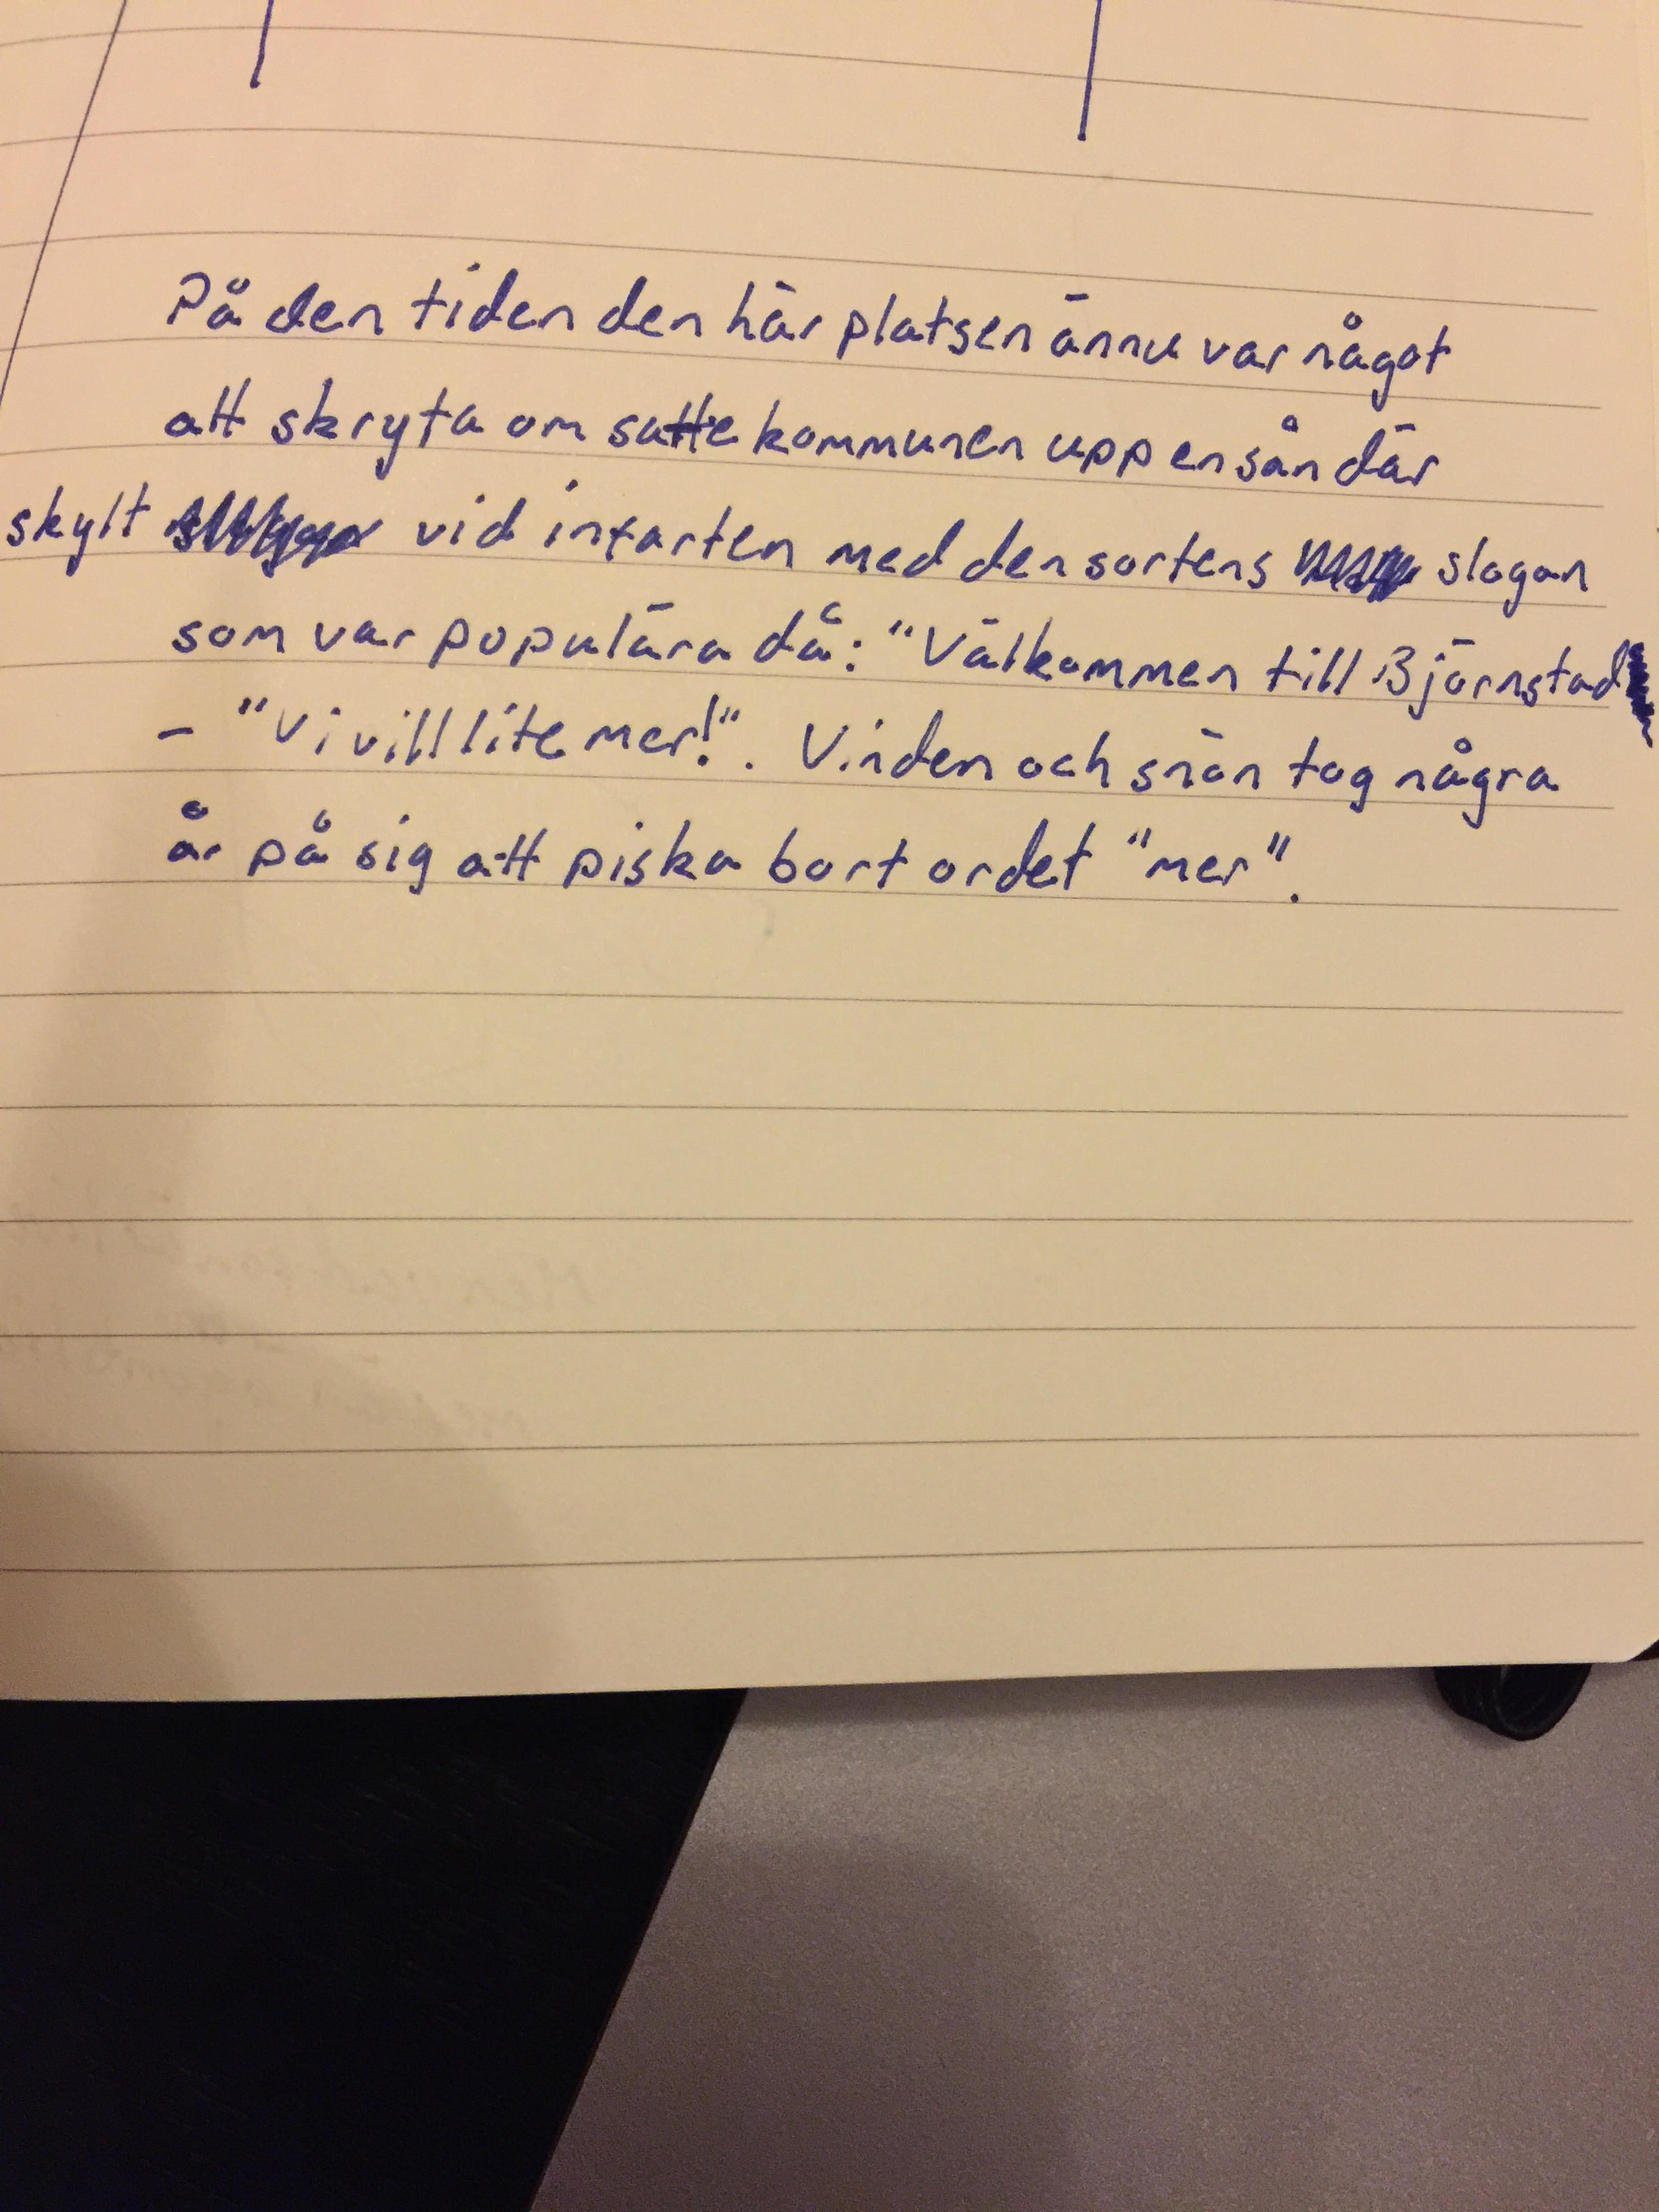 På den tiden den här platsen ännu var något
att skryta om satte kommunen upp en sån där
skylt vid infarten med den sortens slogan
som var populära då: "Välkommen till Björnstad
- "Vi vill lite mer!". Vinden och snön tog några
år på sig att piska bort ordet "mer".